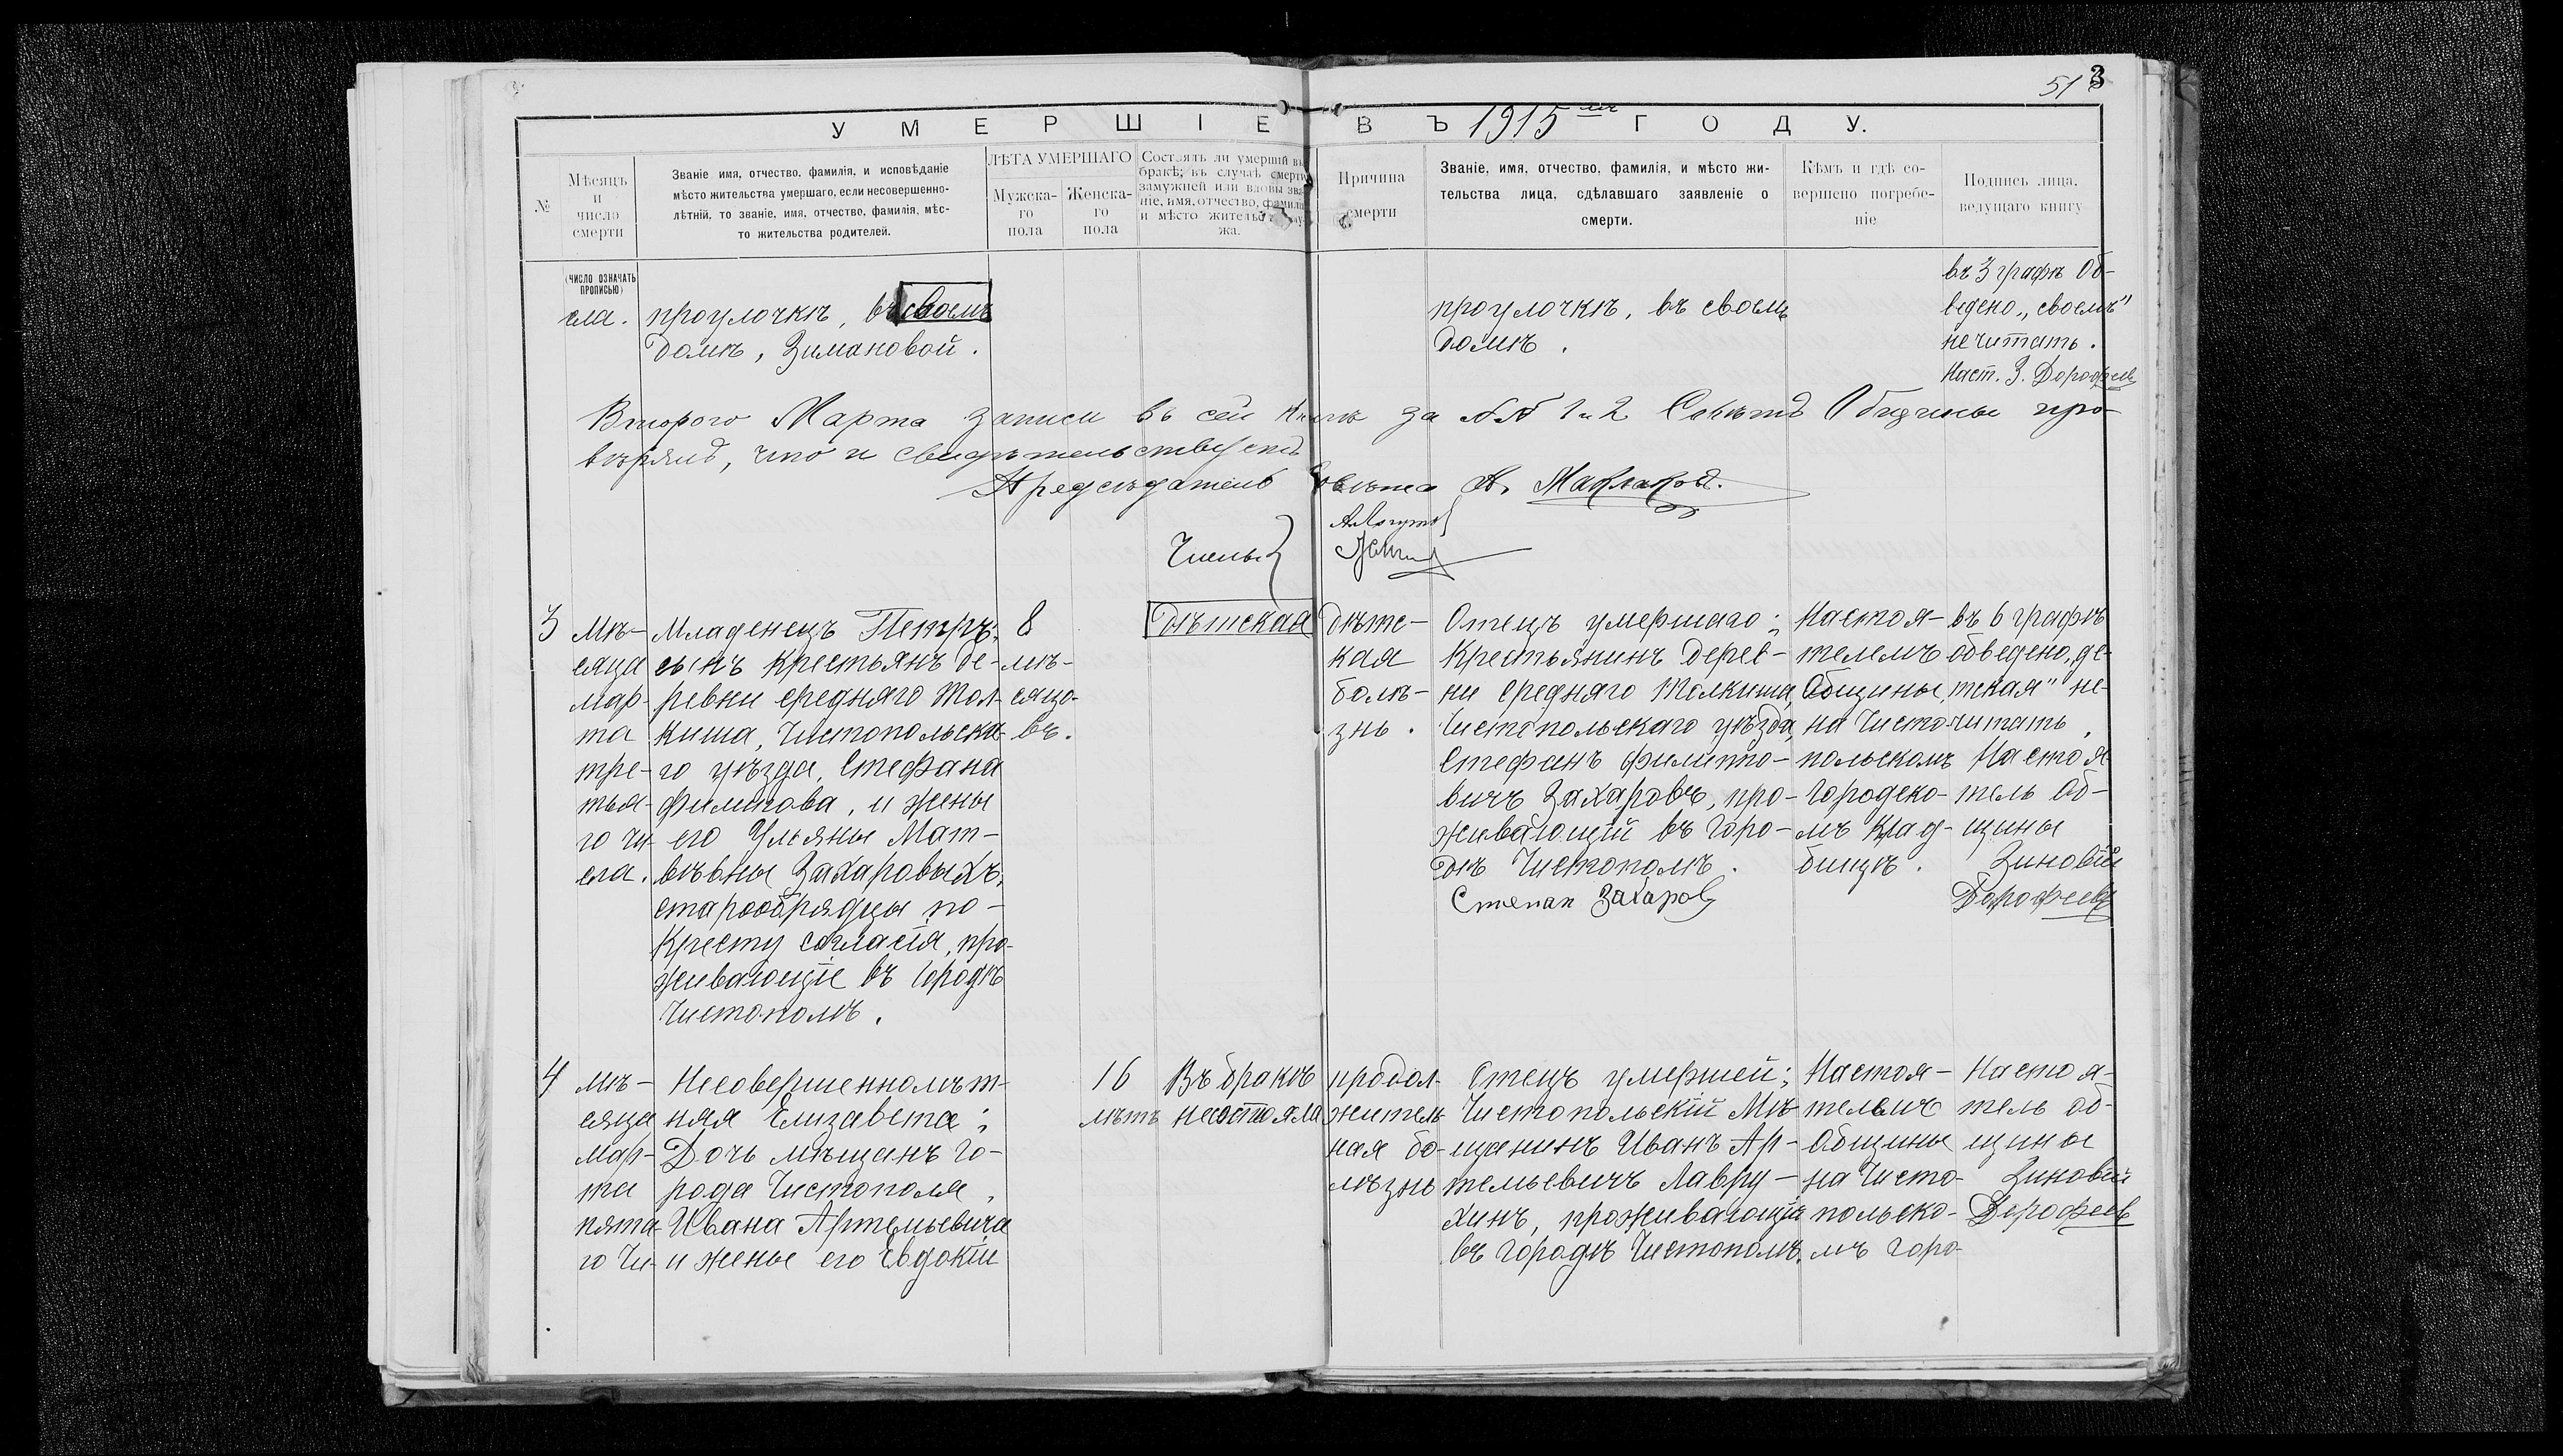 51 3
УМЕРШІЕ ВЪ 1915 мъ ГОДУ.
№
Мѣсяцъ
и
число
смерти
Званіе имя, отчество, фамилія, и исповѣданіе
мѣсто жительства умершаго, если несовершенно-
лѣтній, то званіе, имя, отчество, фамилія, мѣс-
то жительства родителей.
ЛѢТА УМЕРШАГО
Мужска-
го
пола
Женска-
го
пола
Состоятъ ли умершій въ
бракѣ; въ случаѣ смерти
замужней или вдовы зва-
ніе, имя, отчество, фамилія
и мѣсто жительст
жа.
Причина
смерти
Званіе, имя, отчество, фамилія, и мѣсто жи-
тельства лица, сдѣлавшаго заявленіе о
смерти.
Кѣмъ и гдѣ со-
вершено погребе-
ніе
Подпись лица,
ведущаго книгу
(ЧИСЛО ОЗНАЧАТЬ
ПРОПИСЬЮ)
сла.
проулочкѣ, въ своемъ
домѣ, Зимановой.
проулочкѣ, въ своемъ
домѣ.
въ 3 графѣ Об-
ведено „своемъ"
не читать.
Наст. З. Дорофеевъ
Второго Марта записи въ сей книгѣ за №№ 1 и 2 Совѣтъ Общины про-
вѣрялъ, что и свидѣтельствуетъ
Предсѣдатель Совѣта А. Маклаковъ.
Члены
3
Мѣ-
сяца
мар-
та
тре-
тья-
го чи-
сла.
Младенецъ Петръ;
сынъ крестьянъ де-
ревни средняго Тол-
киша, Чистопольска-
го уѣзда, Стефана
Филипова, и жены
его Ульяны Мат-
вѣвны Захаровыхъ,
старообрядцы по-
Кресту согласія, про-
живающіе въ городѣ
Чистополѣ.
8
мѣ-
сяцо-
въ.
Дѣтская
Дѣтс-
кая
болѣ-
знь.
Отецъ умершаго;
Крестьянинъ дерев-
ни средняго Толкиша,
Чистопольскаго уѣзда,
Стефанъ Филиппо-
вичъ Захаровъ, про-
живающій въ горо-
дѣ Чистополѣ.
Степан Захаров
Настоя-
телемъ
Общины,
на Чисто-
польскомъ
Городско-
мъ Клад-
бищѣ.
въ 6 графѣ
обведено „дѣ-
тская" не-
читать,
Настоя-
тель Об-
щины
Зиновій
Дорофеевъ
4
мѣ-
сяца
мар-
та
пята-
го Чи-
Несовершеннолѣт-
няя Елизавета;
Дочь мѣщанъ го-
рода Чистополя,
Ивана Артемьевича
и жены его Евдокіи
16
лѣтъ
Въ бракѣ
несостояла
продол-
житель
ная бо-
лѣзнь
Отецъ умершей;
Чистопольскій Мѣ-
щанинъ Иванъ Ар-
темьевичъ Лавру-
хинъ, проживающій
въ городѣ Чистополѣ.
Настоя-
телемъ
Общины
на Чисто-
польско-
мъ горо-
Настоя-
тель об-
щины
Зиновій
Дорофеев